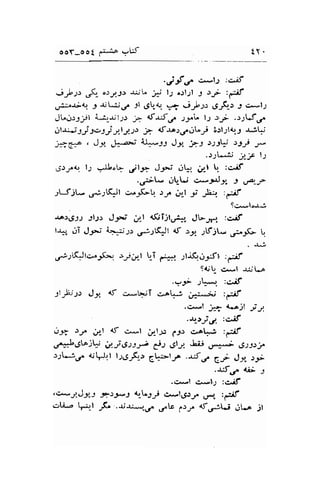 ٤٢٠ کتاب هشتم ٥٥٤_٥٥٣
گفت: راست می‌گوئی.
گفتم: خرد و اراده را نیز مانند دو برده یکی در طرف
راست و دیگری در طرف چپ به پای او می‌نشاند و به خدمتش
می‌گمارد. خرد را مامور می‌کند که جز در اندیشه افزودن مال
نباشد و به اراده فرمان می‌دهد که جز در برابر ثروت و ثروتمندان
سر فرود نیاورد و جز پول و وسیله تحصیل پول ، هیچ چیز
را عزیز نشمارد.
گفت: با این بیان تحول جوانی جاه‌طلب را به مردی
حریص و پولدوست نمایان ساختی.
گفتم: بنظر تو این مرد با حکومت الیگارشی سازگار
شده است؟
گفت: بهر حال پیش از آنکه این تحول در او روی دهد
با حکومتی سازگار بود که الیگارشی در نتیجه تحول آن پیدا
شد .
گفتم: اکنون بگذار ببینم آیا این فرد به حکومت الیگارشی
همانند است یا نه؟
گفت: بسیار خوب.
گفتم: نخستین شباهت آنجاست که پول در نظر او
برتر از همه چیز است.
گفت: بی‌تردید.
گفتم: شباهت دوم در این است که این مرد چون
مزدوری خسیس فقط برای رفع ضروری‌ترین نیازهای طبیعی
خود پول خرج می‌کند. هر احتیاج دیگر را ابلهانه می‌شمارد
و خفه می‌کند.
گفت: راست است.
گفتم: پس مردی است فرومایه و سودجو و پول‌پرست،
از همان قماشی که مردم عامی می‌پسندند. مگر اینها صفات